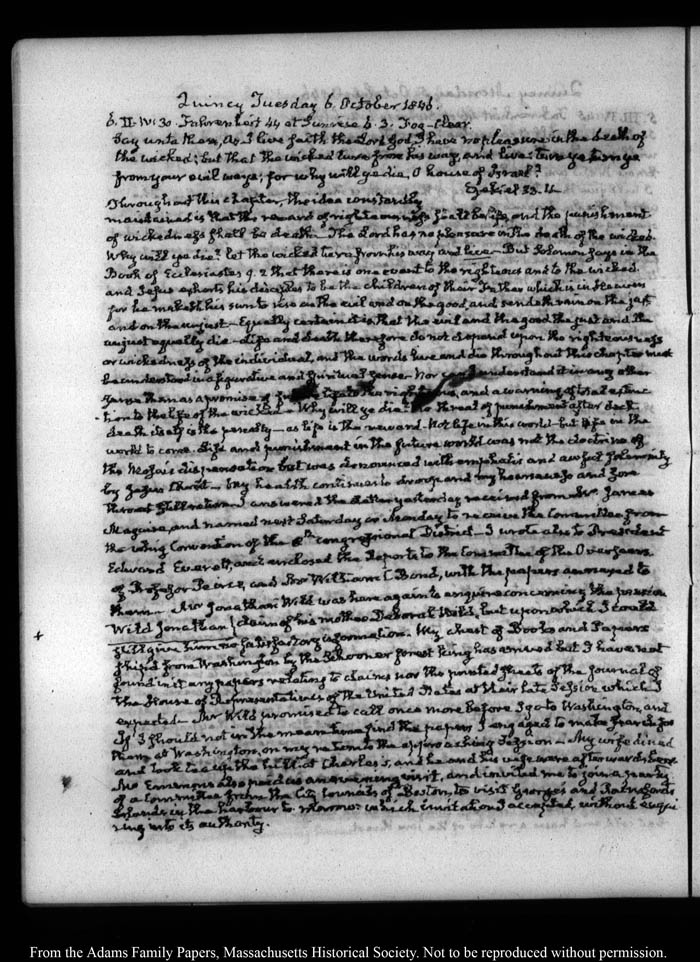 Quincy Tuesday 6. October 1846.
6. II. IV: 30. Fahrenheit 44 at Sunrise 6. 3. Fog-Clear.
Say unto them, As I live saith the Lord God, I have no pleasure in the death of
the wicked; but that the wicked turn from his way, and live: turn ye turn ye
from your evil ways; for why will ye die, O house of Israel?
Ezekiel 33. 11.
Throughout this chapter, the idea constantly
maintained is that the reward of righteousness shall be life, and the punishment
of wickedness shall be death. The Lord has no pleasure in the death of the wicked.
Why will ye die? let the wicked turn from his way and live – But Solomon says in the
Book of Ecclesiastes 9. 2 that there is one event to the righteous and to the wicked.
and Jesus exhorts his disciples to be the children of their Father which is in Heaven
for he maketh his sun to rise on the evil and on the good and sendeth rain on the just
and on the unjust – Equally certain it is that the evil and the good the just and the
unjust equally die – Life and death therefore do not depend upon the righteousness
or wickedness of the individual, and the words live and die throughout this chapter must
be understood in a figurative and spiritual sense – Nor can I understand it in any other
sense than as a promise of future life to the righteous, and a warning of total extinc
tion to the life of the wicked – Why will ye die – no threat of punishment after death
death itself is the penalty – as life is the reward – Not life in this world – but life in the
world to come. Life and punishment in the future world was not the doctrine of
the Mosaic dispensation but was denounced with emphatic and awful solemnity
by Jesus Christ – My health continues to droop and my hoarseness and sore
throat still returns. I answered the Letter yesterday received from Mr. James
Maguire, and named next Saturday or Monday to receive the Committee from
the whig Convention of the 8th. Congressional District – I wrote also to President
Edward Everett, and enclosed the Reports to the Committee of the Overseers
of Professor Peirce, and Mr William C Bond, with the papers annexed to
them – Mr Jonathan Wild was here again to enquire concerning the pension
Wild Jonathan claim of his mother Deborah Wild, but upon which I could
still give him no satisfactory information. My chest of Books and Papers
shipped from Washington by the Schooner forest King has arrived but I have not
found in it any papers relating to claims nor the printed sheets of the Journal of
the House of Representatives of the United States at their late Session which I
expected – Mr Wild promised to call once more before I go to Washington, and
If I should not in the mean time find the papers I engaged to make search for
them at Washington, on my return to the approaching Session – My wife dined
and took tea up the hill at Charles's, and he and his wife were afterwards here
Mr Emmons also paid us an evening visit, and invited me to join a party
of a Committee from the City Councils of Boston, to visit Georges and Rainsfords
Islands in the harbour to morrow: which invitation I accepted, without enqui
ring into its authority.
+
From the Adams Family Papers, Massachusetts Historical Society. Not to be reproduced without permission.